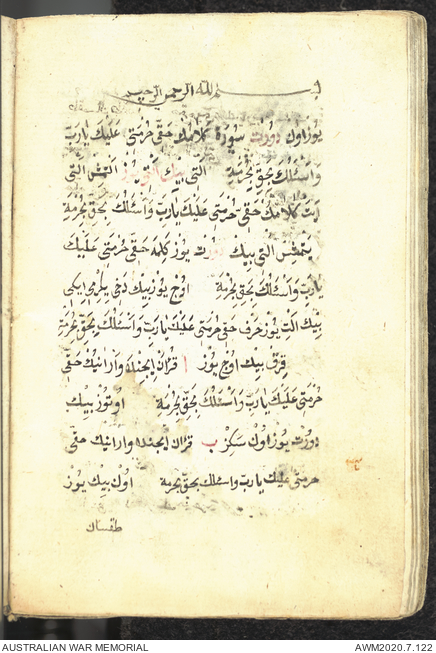 بسم الله الرحمن الرحيم
يوز اون دورت سورة كلامك حقى حرمتى عليك يا رب
واسئلك بحق بحرمة التى بيك التى يوز التمش التى
آيت كلامك حقى حرمتى عليك يا رب واسئلك بحق بحرمة
يتمش التى بيك دورت يوز كلمه حقى حرمتى عليك
يا رب واسئلك بحق بحرمة اوج يوز بيك دخى يكرمى ايكى
بيك التى يوز حرف حقى حرمتى عليك يا رب واسئلك بحق بحرمة
قرق بيك اوج يوز ا قرآن ايجنده وارانيك حقى
حرمتى عليك يا رب واسئلك بحق بحرمة اوتوز بيك
دورت يوز اون سكز ب قرآن ايجنده وارانيك حقى
حرمتى عليك يا رب واسئلك بحق بحرمة اون بيك يوز
طقسان
AUSTRALIAN WAR MEMORIAL
AWM2020.7.122